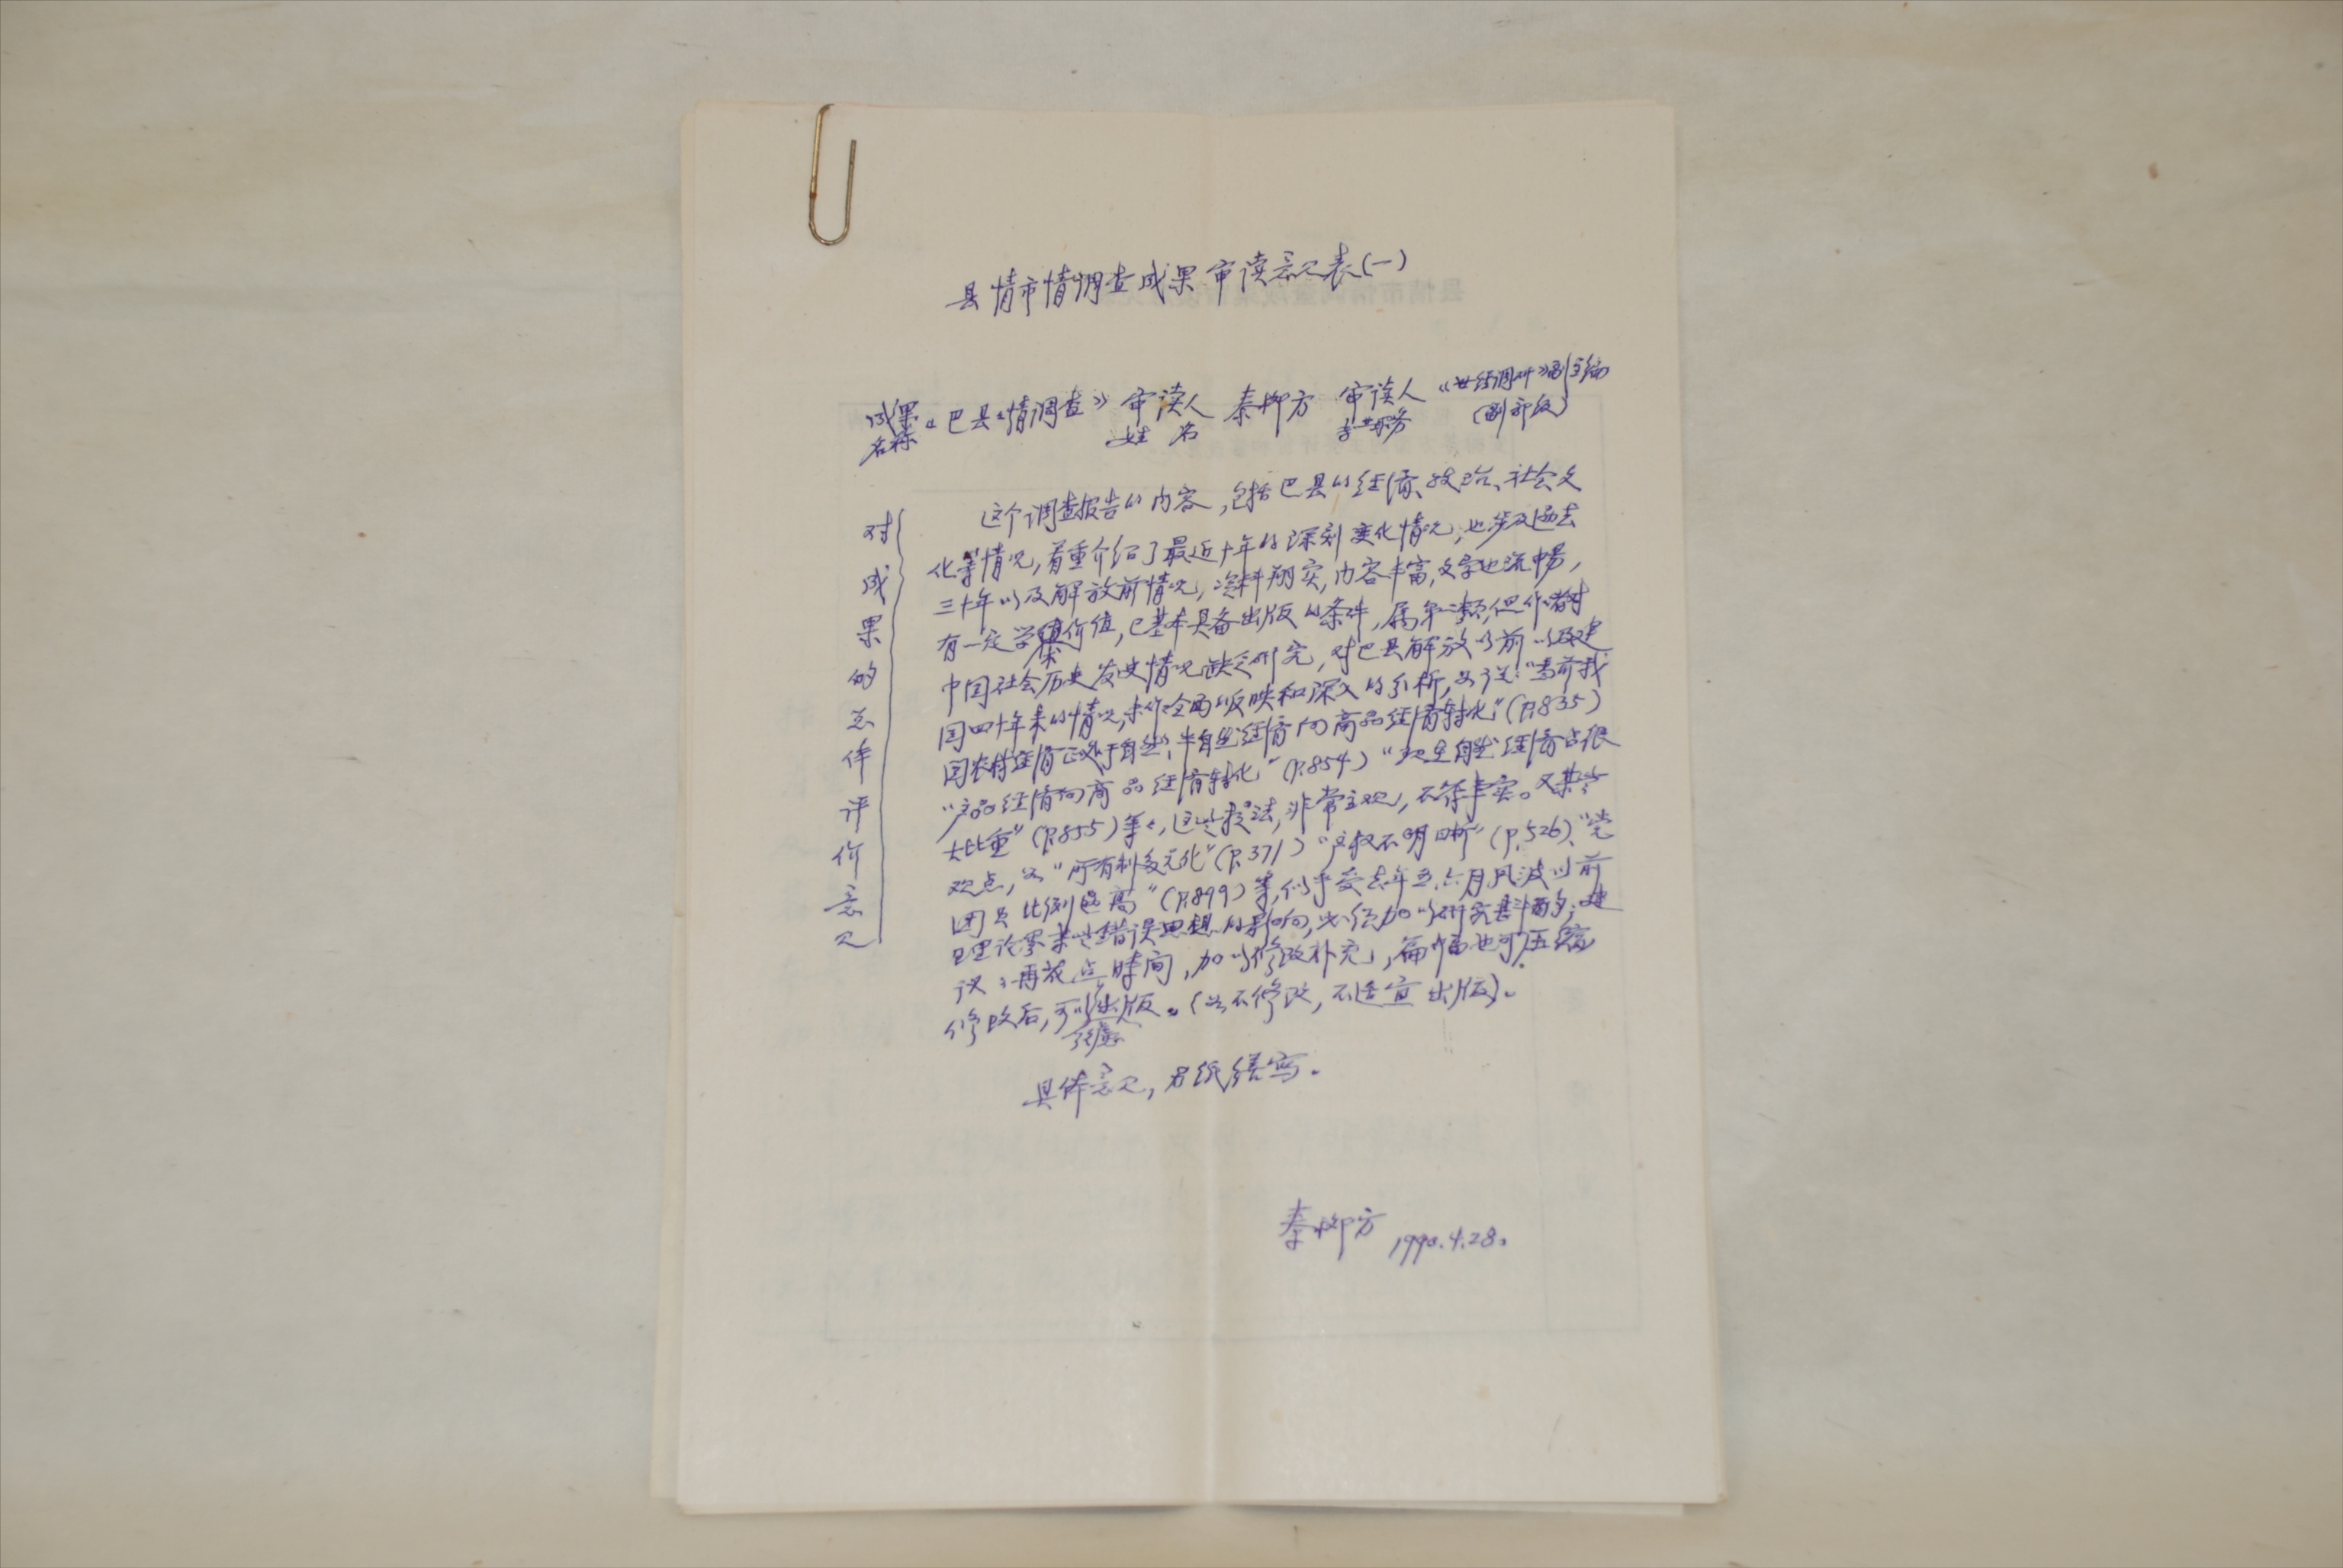 县情市情调查成果审读意见表(一)
成果名称《巴县县情调查》 审读人姓名 秦柳方 审读人职务 《世经调研》副主编(副部级)
对成果的总体评价意见
这个调查报告的内容,包括巴县的经济、政治、社会文
化等情况,着重介绍了最近十年的深刻变化情况,也涉及过去
三十年以及解放前情况,资料翔实,内容丰富,文字也流畅,
有一定学术价值,已基本具备出版的条件,属第 类,但作者对
中国社会历史发史情况缺乏研究,对巴县解放以前以及建
国四十年来的情况,未作全面的反映和深入的分析,如说:“当前我
国农村经济正处于自然、半自然经济向商品经济转化”(P.835)
“产品经济向商品经济转化”(P.854)“ 自然经济占很
大比重”(P.855)等等,这些提法,非常主观,不符事实。又某些
观点,如“所有制多元化”(P.371)“产权不明晰”(P.526)、“党
团员比例过高”(P.899)等,似乎受去年五、六月风波以前
理论界某些错误思想的影响,必须加以研究斟酌,建
议:再花点时间,加以修改补充,篇幅也可压缩
修改后,可以考虑出版。(如不修改,不适宜出版)。
具体意见,另纸缮写。
秦柳方 1990.4.28.